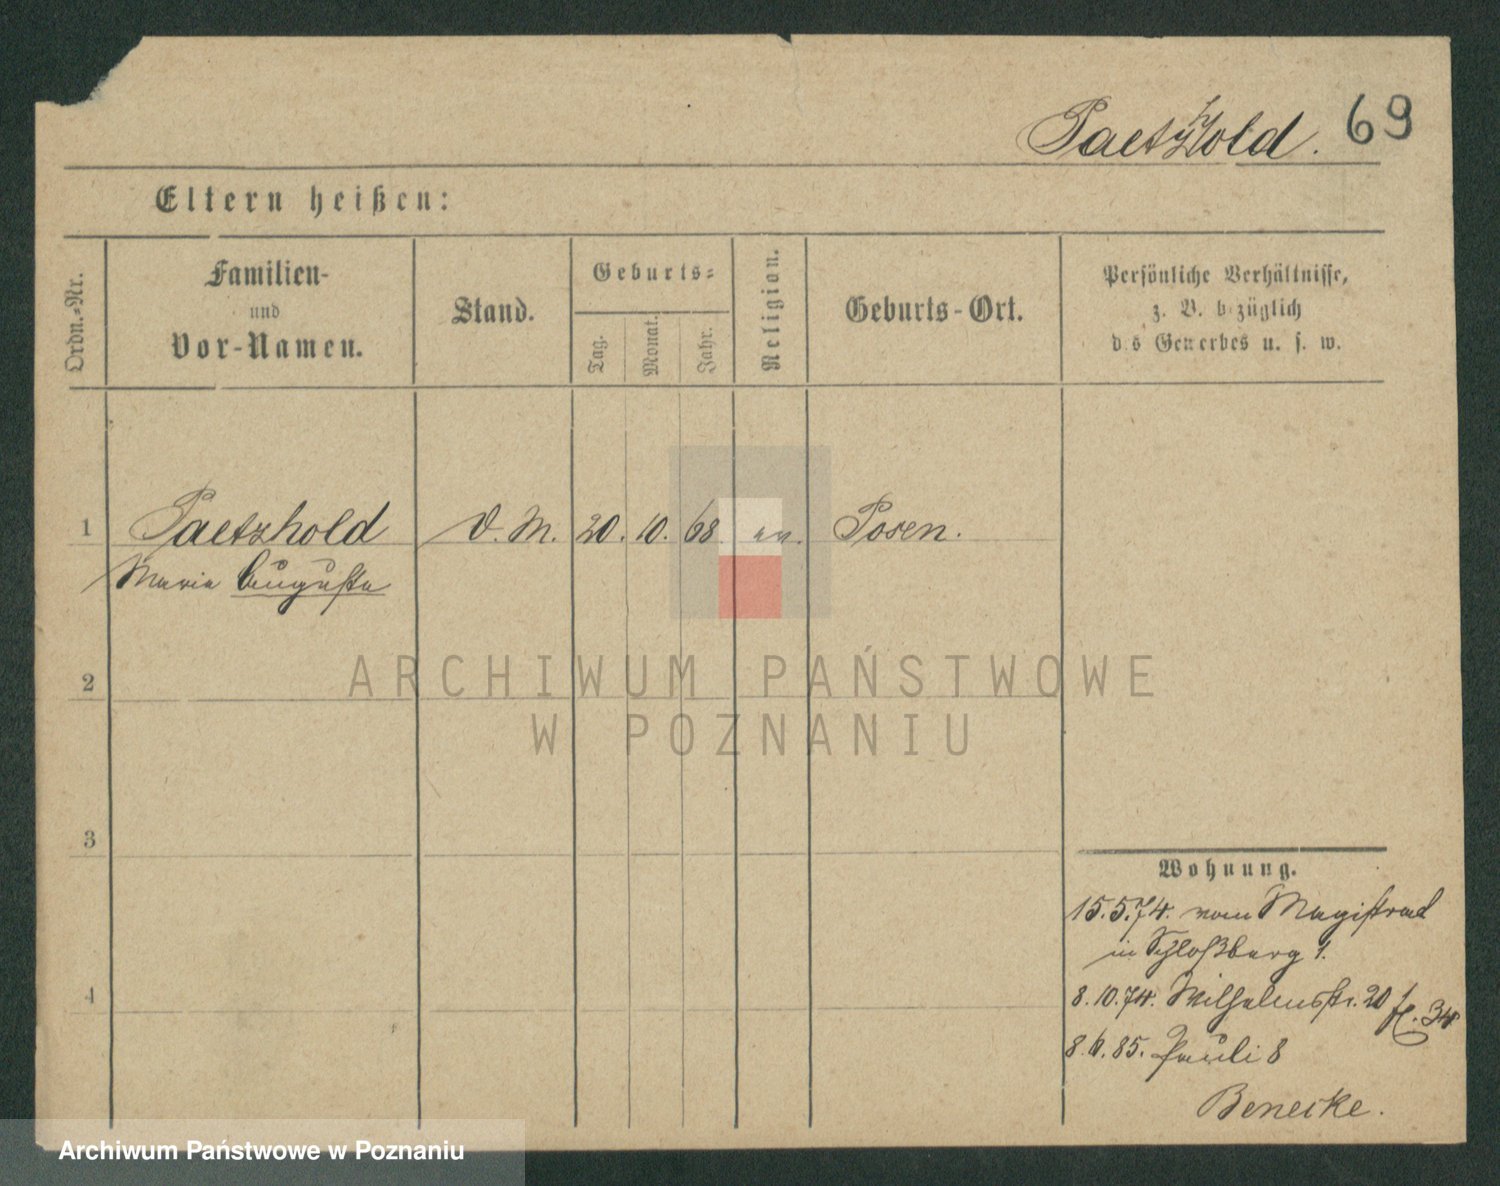 Paetzhold. 69
Eltern heißen:
Ordn.-Nr.
Familien-
und
Vor-Namen.
Stand.
Geburts-
Tag.
Monat.
Jahr.
Religion.
Geburts-Ort.
Persönliche Verhältnisse,
z. B. bezüglich
des Gewerbes u. s. w.
1 Paetzhold D. M. 20. 10. 68 ev. Posen.
Marie Auguste
2
3
4
Wohnung.
15.5.74. vom Magistrat
in Schloßberg 1.
8.10.74. Wilhelmstr. 20 34
8.6.85. Pauli 8
Benecke.
ARCHIWUM PAŃSTWOWE
W POZNANIU
Archiwum Państwowe w Poznaniu